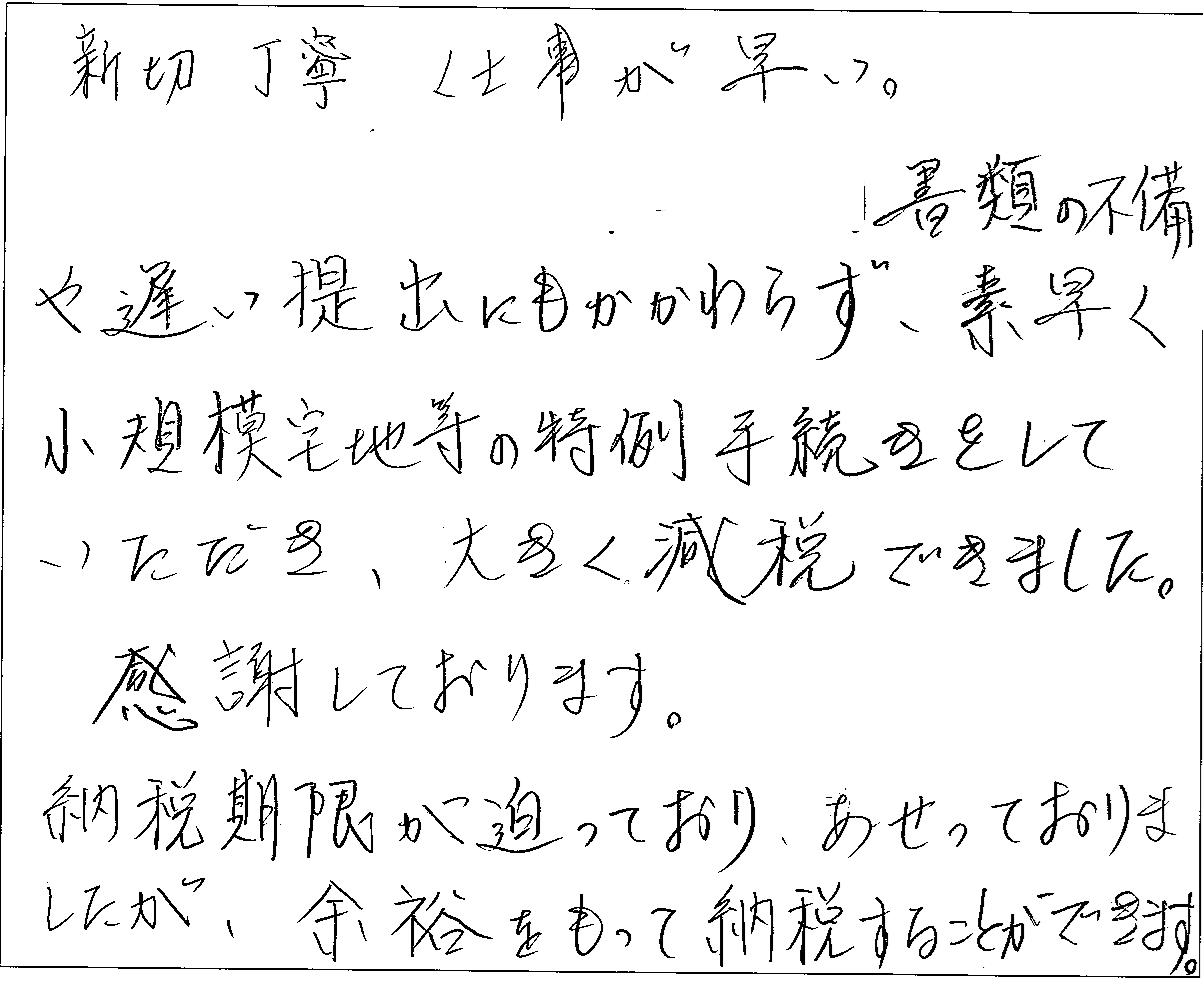 新切 丁寧 仕事が早い。
書類の不備
や遅い提出にもかかわらず、素早く
小規模宅地等の特例手続きをして
いただき、大きく減税できました。
感謝しております。
納税期限が迫っており、あせっておりま
したが、余裕をもって納税することができます。